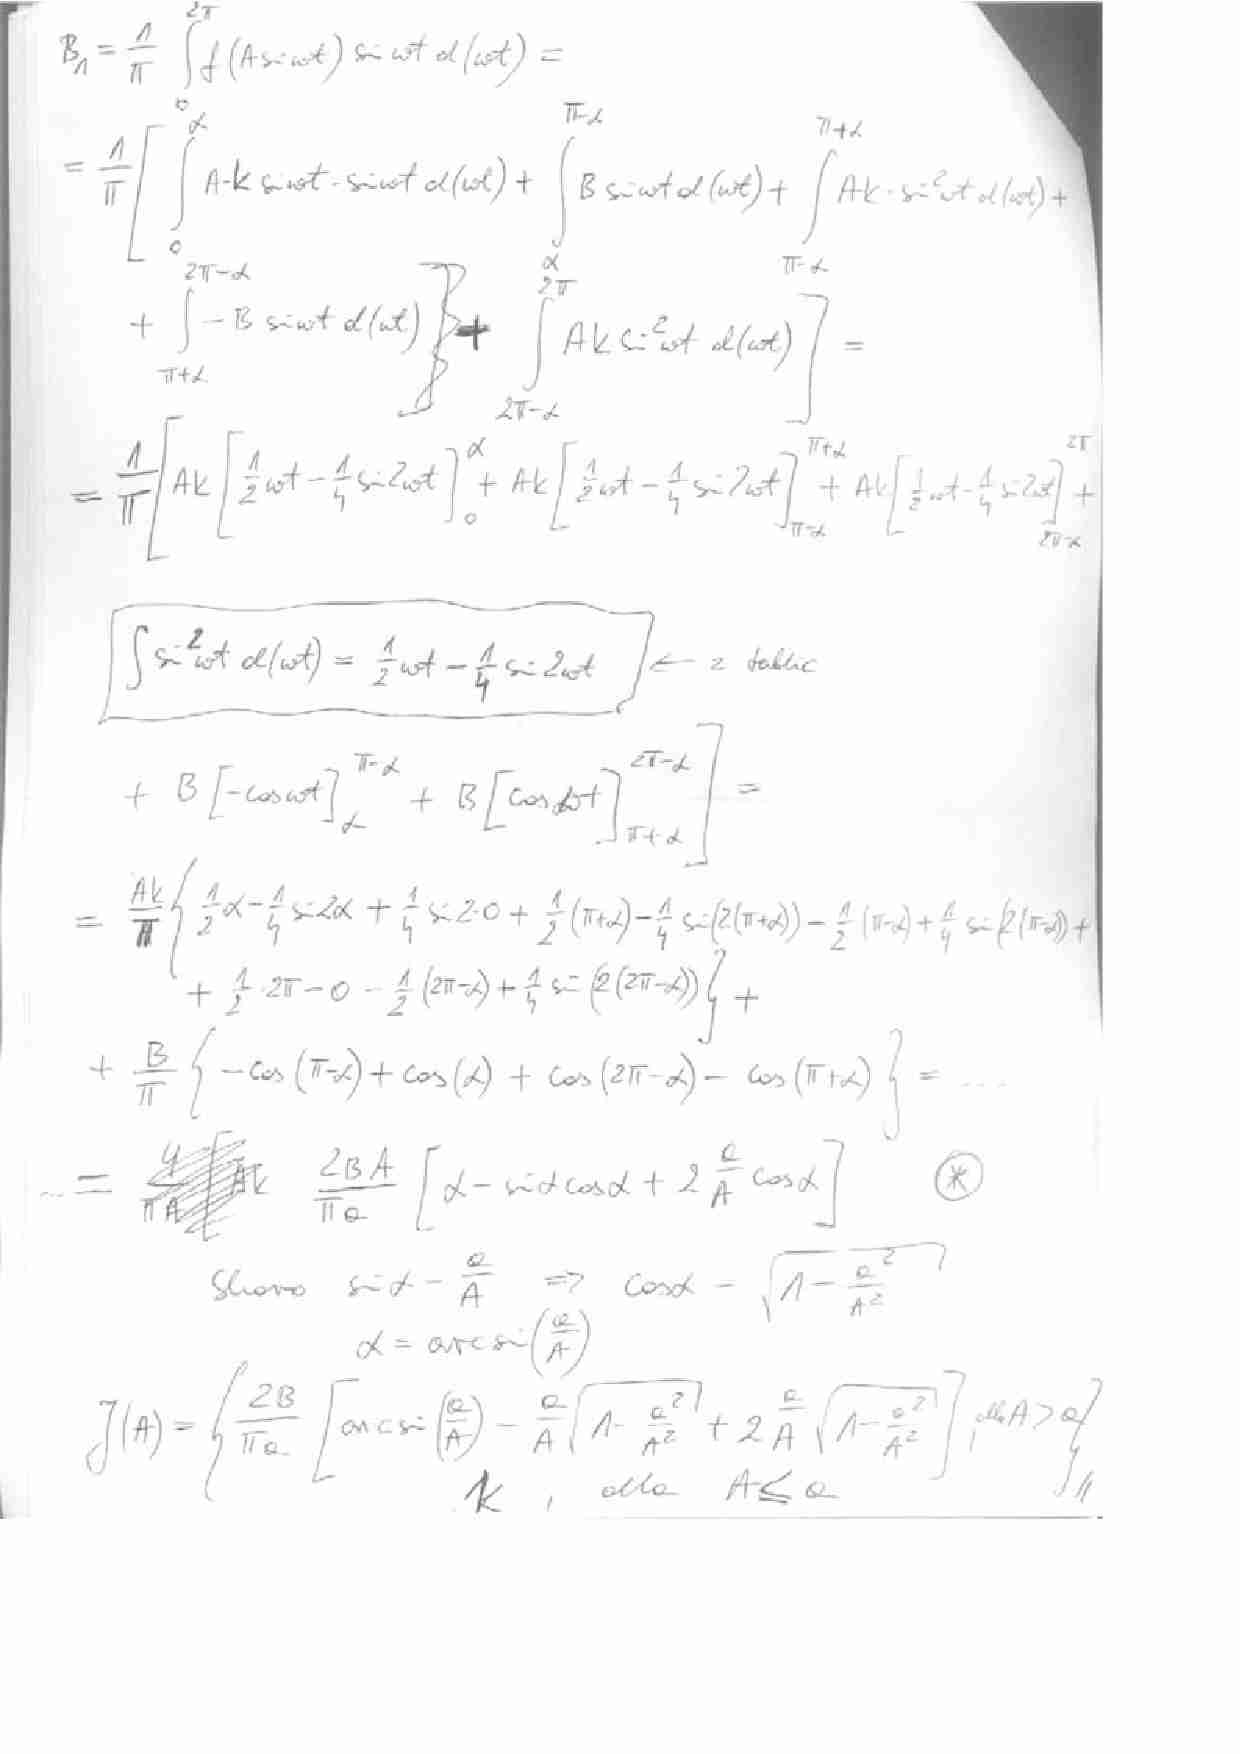 B₁ = 1/π ∫₀^{2π} f(A sin ωt) sin ωt d(ωt) =
= 1/π [ ∫₀^{α} A·k sin ωt · sin ωt d(ωt) + ∫_{α}^{π-α} B sin ωt d(ωt) + ∫_{π-α}^{π+α} Ak · sin²ωt d(ωt) +
+ ∫_{π+α}^{2π-α} -B sin ωt d(ωt) } + ∫_{2π-α}^{2π} Ak sin²ωt d(ωt) ] =
= 1/π [ Ak [ 1/2 ωt - 1/4 sin 2ωt ]₀^{α} + Ak [ 1/2 ωt - 1/4 sin 2ωt ]_{π-α}^{π+α} + Ak [ 1/2 ωt - 1/4 sin 2ωt ]_{2π-α}^{2π} +
∫ sin²ωt d(ωt) = 1/2 ωt - 1/4 sin 2ωt ← z tablic
+ B [-cos ωt]_{α}^{π-α} + B [cos ωt]_{π+α}^{2π-α} ] =
= Ak/π { 1/2 α - 1/4 sin 2α + 1/4 sin 2·0 + 1/2 (π+α) - 1/4 sin(2(π+α)) - 1/2 (π-α) + 1/4 sin(2(π-α)) +
+ 1/2 · 2π - 0 - 1/2 (2π-α) + 1/4 sin(2(2π-α)) } +
+ B/π { -cos(π-α) + cos(α) + cos(2π-α) - cos(π+α) } = ...
... = 2BA/πa [ α - sin α cos α + 2 a/A cos α ] (*)
Skoro sin α = a/A => cos α = √(1 - a²/A²)
α = arcsin(a/A)
J(A) = { 2B/πa [ arcsin(a/A) - a/A √(1 - a²/A²) + 2 a/A √(1 - a²/A²) ], dla A > a }
k , dla A ≤ a //